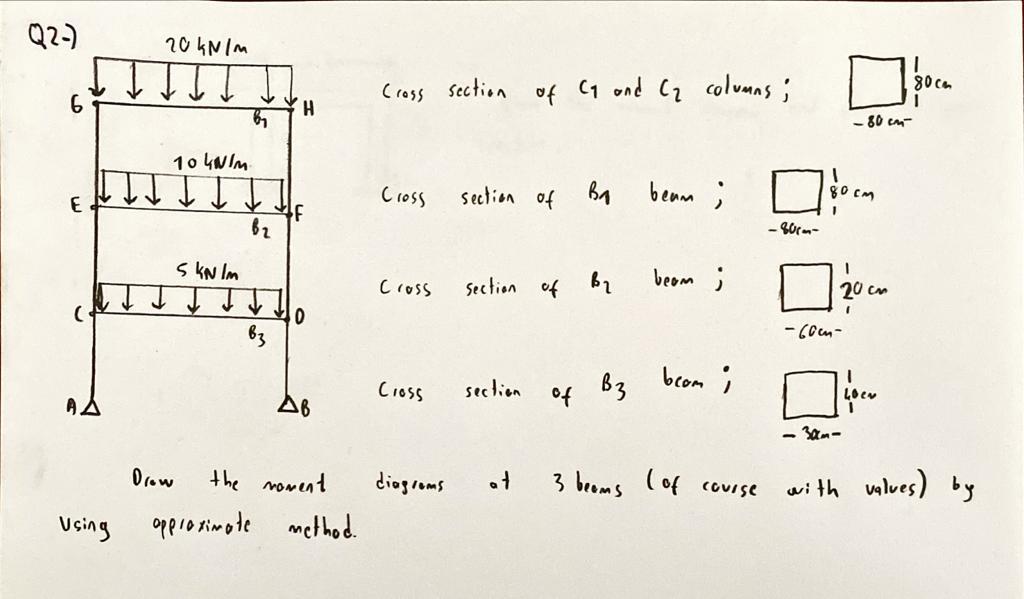 Q2-)
20 kN/m
G
H
B1
10 kN/m
E
F
B2
5 kN/m
C
D
B3
A
B
Cross section of C1 and C2 columns;
80 cm
-80 cm-
Cross section of B1 beam;
80 cm
-80cm-
Cross section of B2 beam;
20 cm
-60cm-
Cross section of B3 beam;
40cm
-30cm-
Draw the moment diagrams at 3 beams (of course with values) by
Using approximate method.